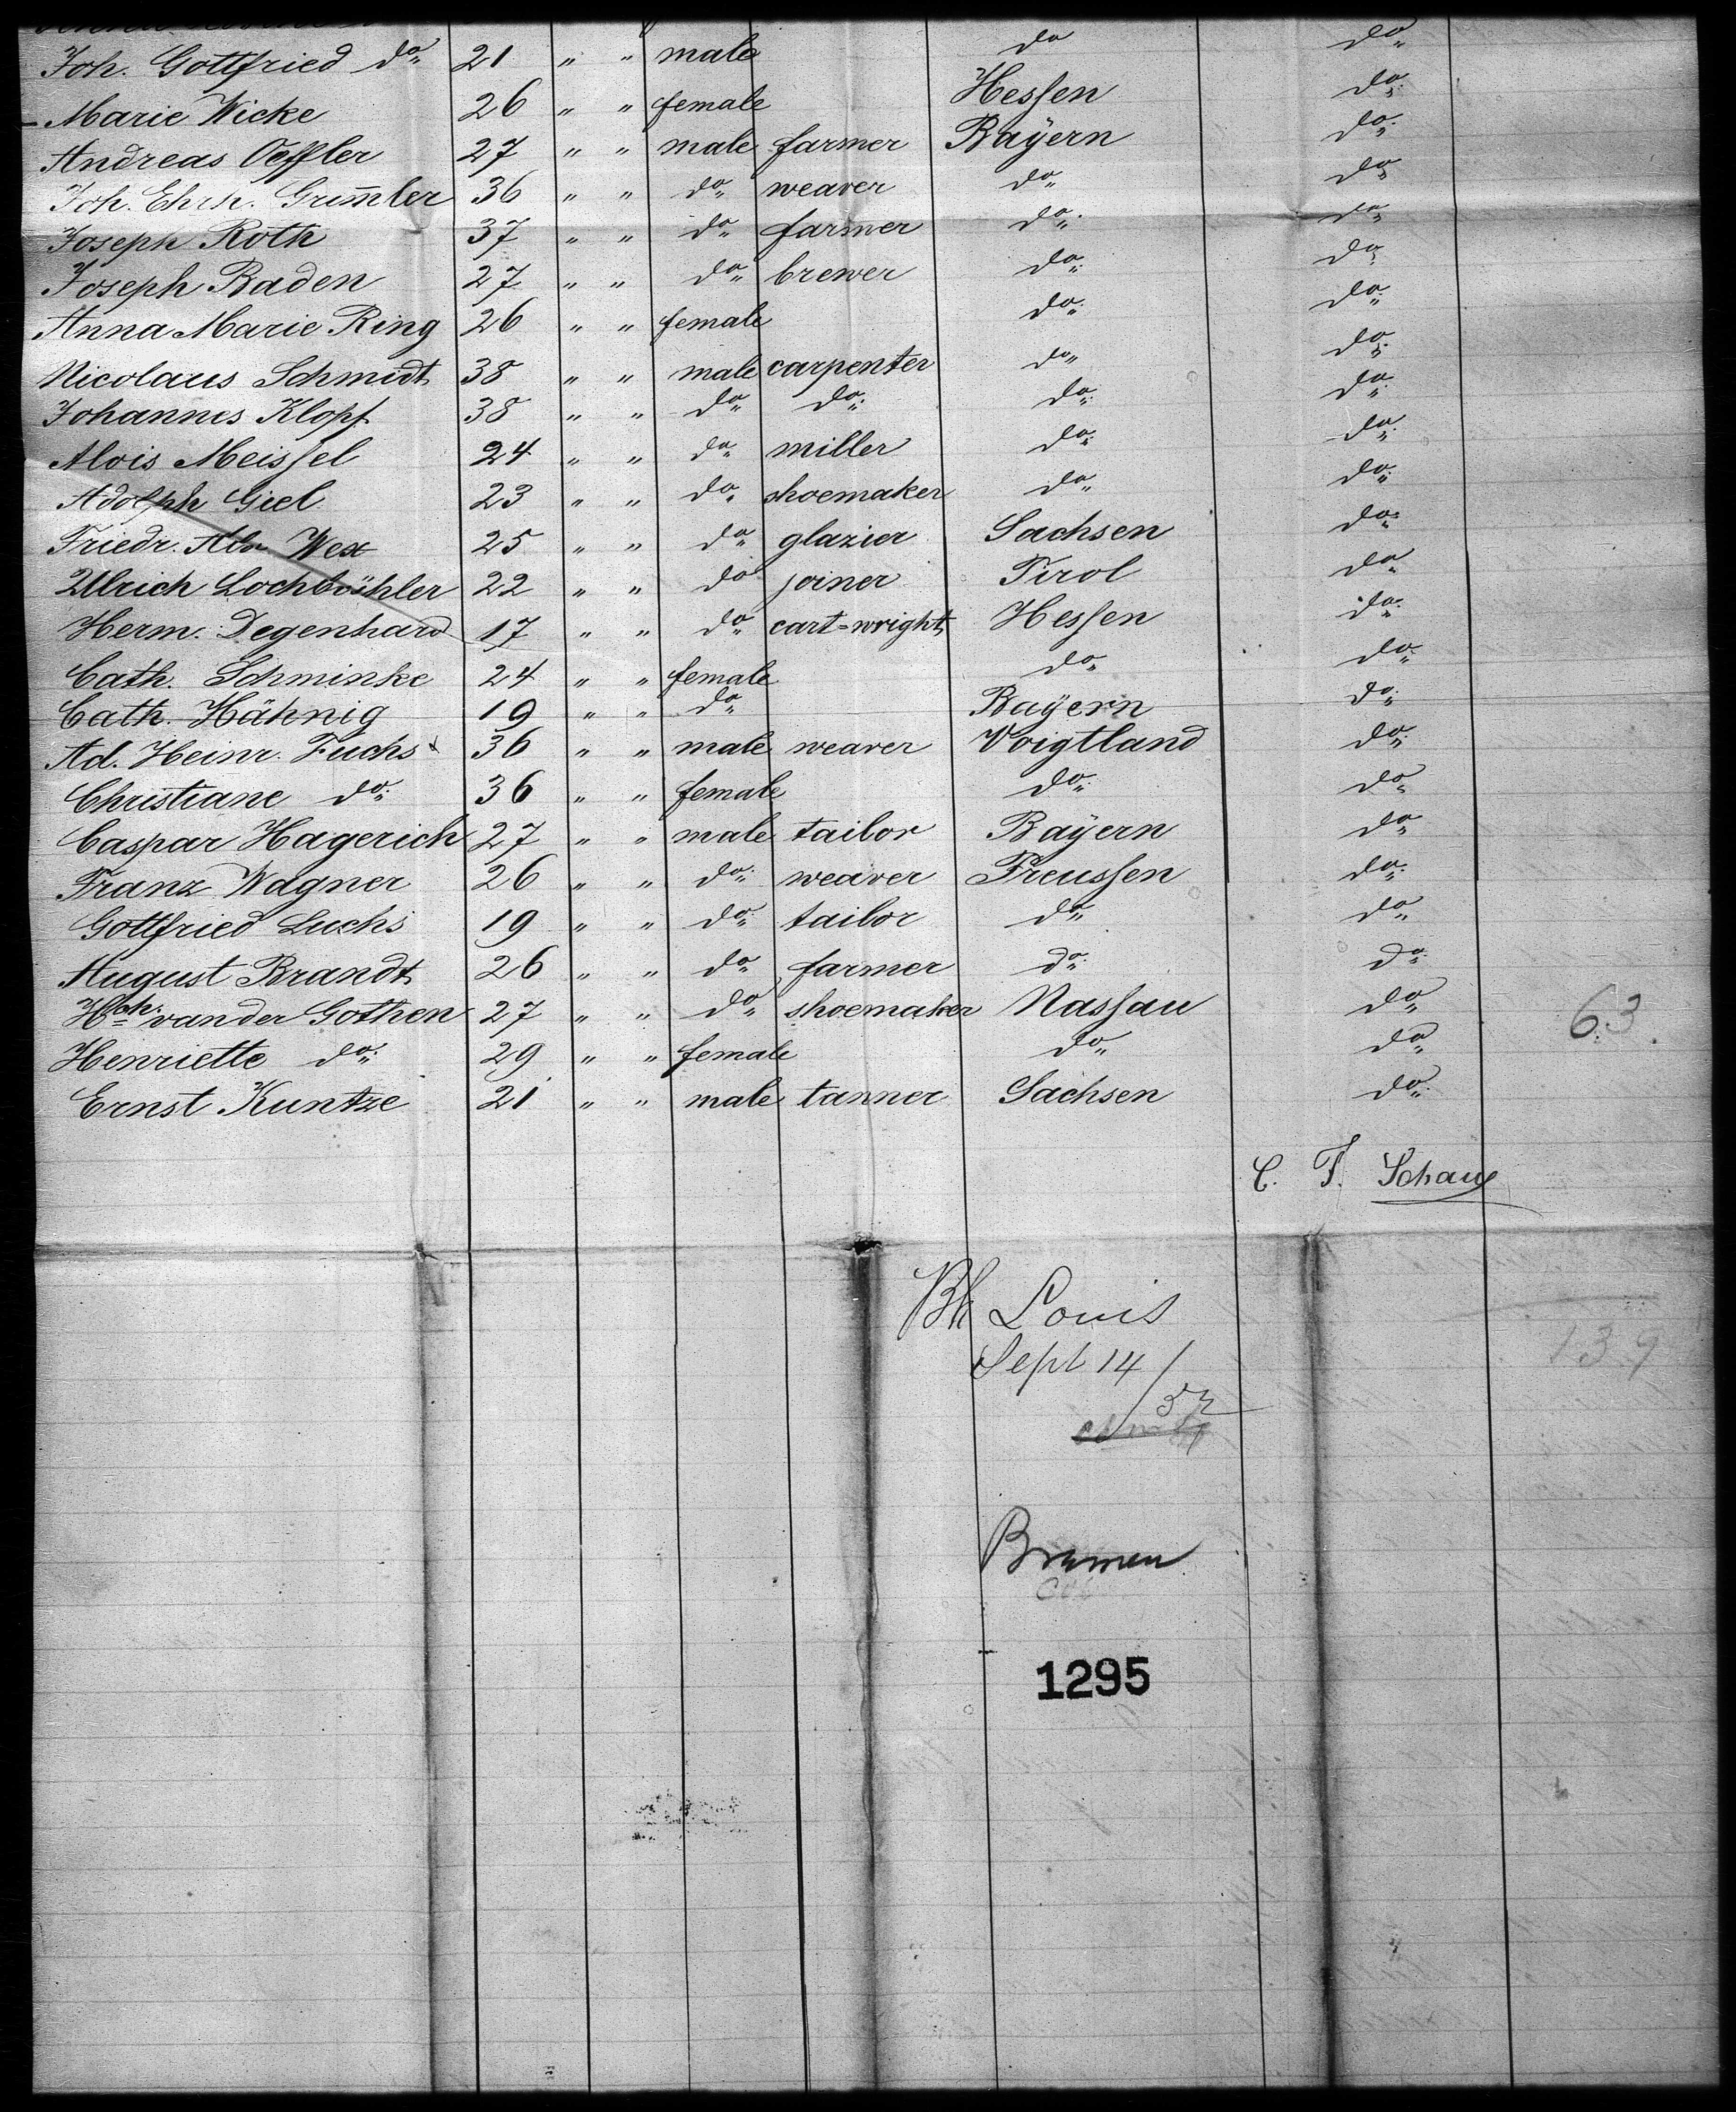 Joh. Gottfried do 21 " " male do do
Marie Wicke 26 " " female Hessen do
Andreas Oeffler 27 " " male farmer Bayern do
Joh. Ehrh. Grum̄ler 36 " " do weaver do do
Joseph Roth 37 " " do farmer do do
Joseph Baden 27 " " do brewer do do
Anna Marie Ring 26 " " female do do
Nicolaus Schmidt 38 " " male carpenter do do
Johannes Klopf 38 " " do do do do
Alois Meissel 24 " " do miller do do
Adolph Giel 23 " " do shoemaker do do
Friedr. Wex 25 " " do glazier Sachsen do
Ulrich Lochböhler 22 " " do joiner Tirol do
Herm. Degenhard 17 " " do cart=wright Hessen do
Cath. Schminke 24 " " female do do
Cath. Hähnig 19 " " do Bayern do
Ad. Heinr. Fuchs 36 " " male weaver Voigtland do
Christiane do 36 " " female do do
Caspar Hagerich 27 " " male tailor Bayern do
Franz Wagner 26 " " do weaver Preussen do
Gottfried Luchs 19 " " do tailor do do
August Brandt 26 " " do farmer do do
Hch. van der Gothen 27 " " do shoemaker Nassau do 63
Henriette do 29 " " female do do
Ernst Kuntze 21 " " male tanner Sachsen do
C. F. Schau
Bk Louis
139
Sept 14/52
Bremen
1295